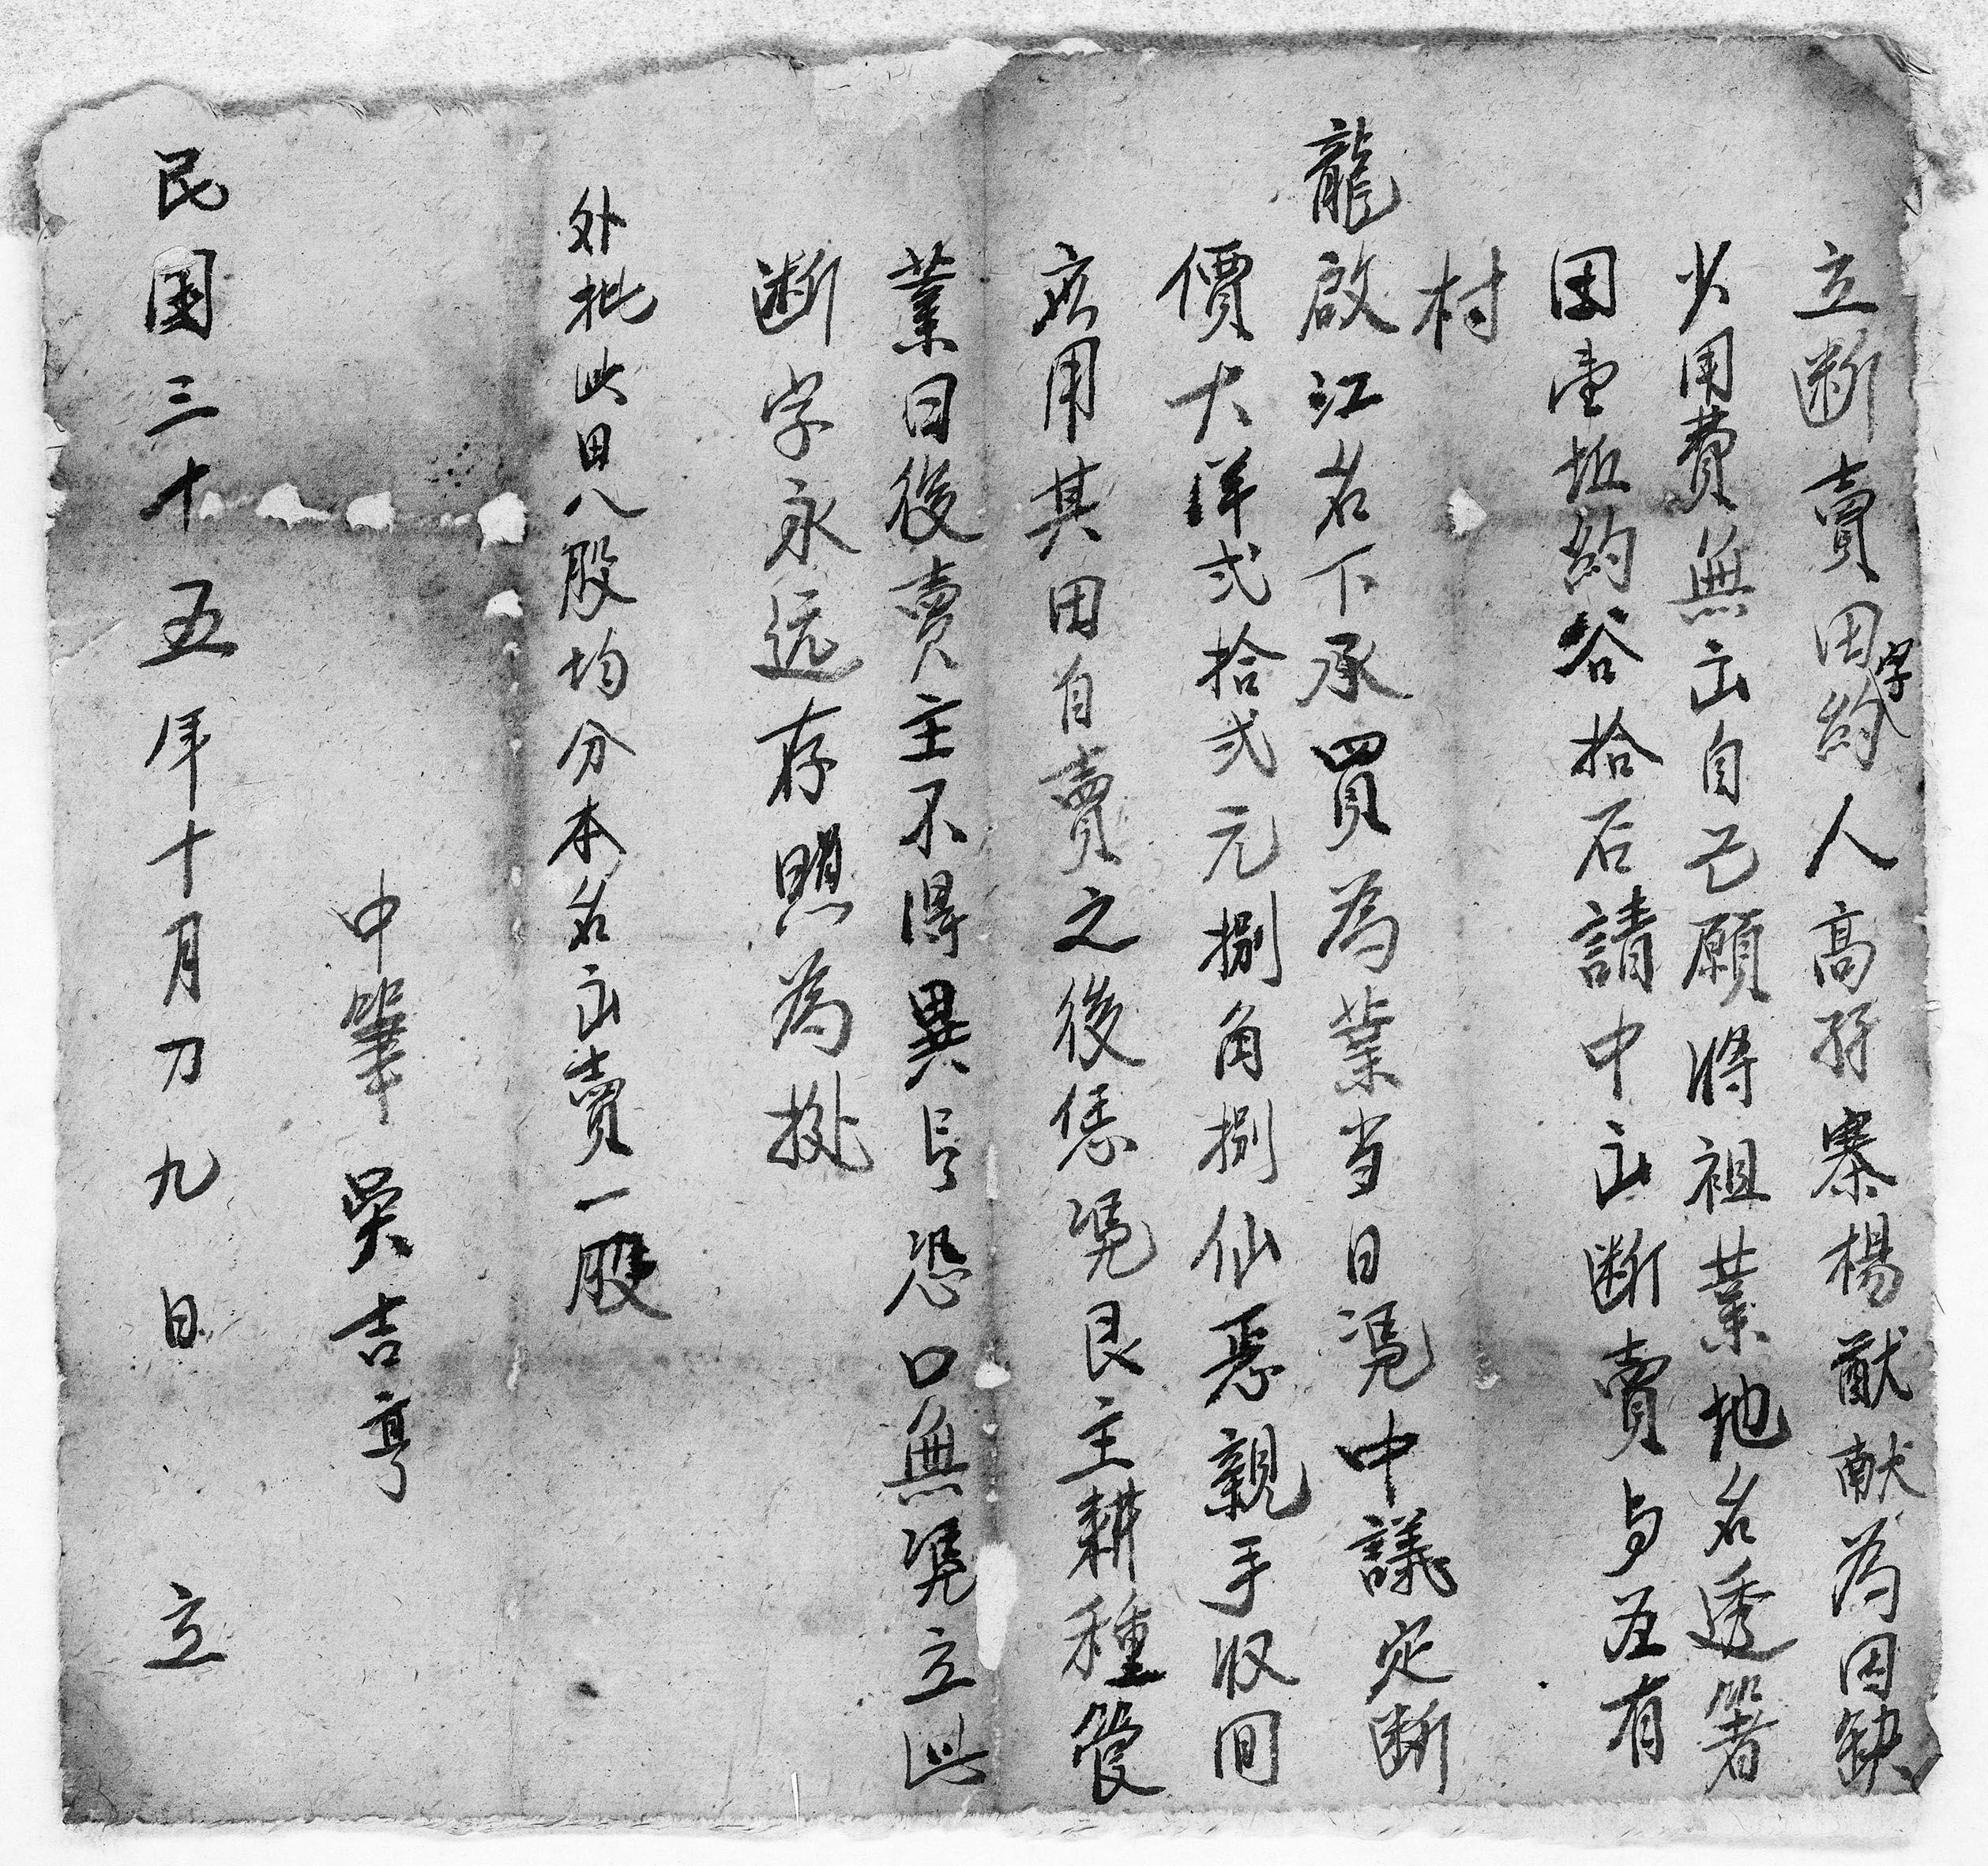 立断賣田約字人高孖寨楊猷献為因缺
少用費無出自己願将祖業地名透箸
田壹坵約谷拾石請中出断賣与五有
村
龍啟江名下承買為業当日凴中議定断
價大洋弍拾弍元捌角捌仙悪親手収回
应用其田自賣之後恁凴艮主耕種管
業日後賣主不得異言恐口無凴立此
断字永远存照為掀
外批此田八股均分本名出賣一股
中筆吴吉亨
民国三十五年十月刀九日立